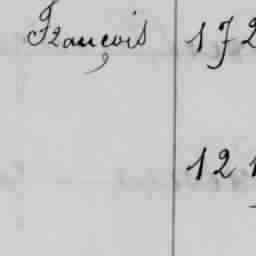 François 172
12